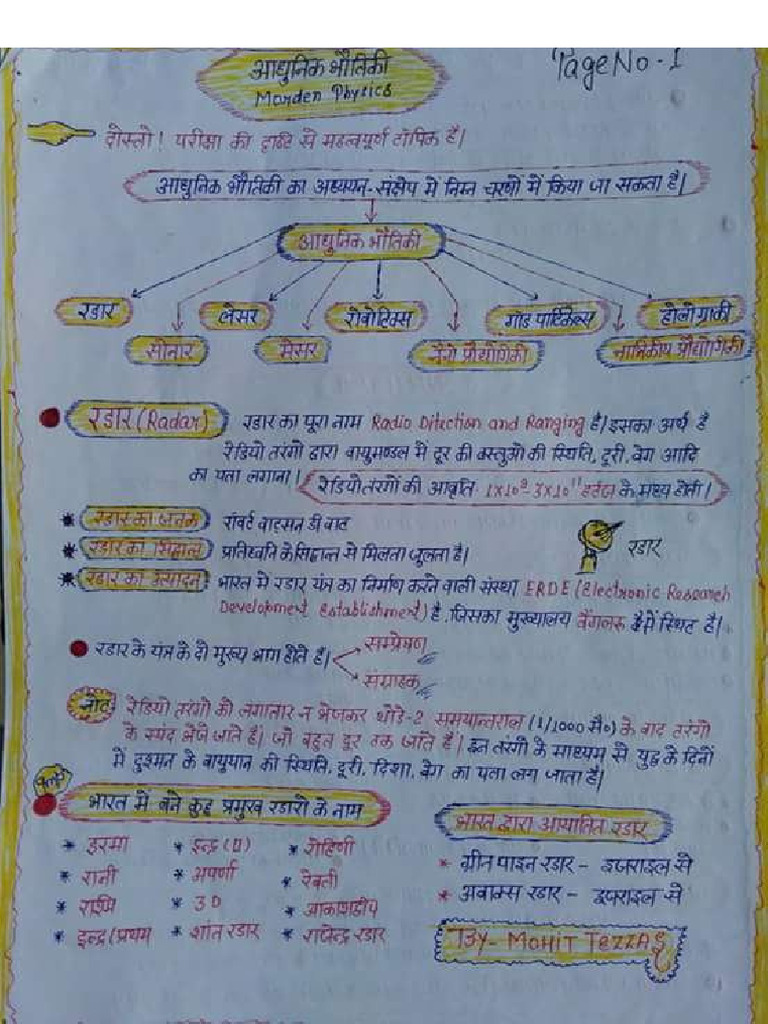 आधुनिक भौतिकी
Marden Physics
Page No - 1
दोस्तो! परीक्षा की द्रष्टि से महत्वपूर्ण टॉपिक है।
आधुनिक भौतिकी का अध्ययन-संक्षेप में निम्न चरणों में किया जा सकता है।
आधुनिक भौतिकी
रडार
लेसर
रोबोटिक्स
गॉड पार्टिकल्स
होलोग्राफी
सोनार
मेसर
नैनो प्रौद्योगिकी
नाभिकीय प्रौद्योगिकी
रडार (Radar) रडार का पूरा नाम Radio Ditection and Ranging है। इसका अर्थ है
रेडियो तरंगो द्वारा वायुमण्डल में दूर की वस्तुओ की स्थिति, दूरी, वेग आदि
का पता लगाना। रेडियो तरंगों की आवृति के मध्य होती।
* रडार का जनक रॉबर्ट वाटसन वाट
* रडार का सिद्धान्त प्रतिध्वनि के सिद्धान्त से मिलता जुलता है।
रडार
* रडार का उत्पादन भारत में रडार यंत्र का निर्माण करने वाली संस्था ERDE (Electronic Research
Development Establishment) है, जिसका मुख्यालय बैंगलरू में स्थित है।
रडार के यंत्र के दो मुख्य भाग होते है।
सम्प्रेषण
संग्राहक
नोट रेडियो तरंगो को लगातार न भेजकर थोडे-2 समयान्तराल (1/1000 सै०) के बाद तरंगो
के स्पंद भेजे जाते है। जो बहुत दूर तक जाते है। इन तरंगो के माध्यम से युद्ध के दिनों
में दुश्मन के वायुयान की स्थिति, दूरी, दिशा, वेग का पता लग जाता है।
भारत में बने कुछ प्रमुख रडारो के नाम
* इरमा * इन्द्र (II) * रोहिणी
* रानी * अपर्णा * रेवती
* * 3D * आकाशदीप
* इन्द्र (प्रथम * शॉन रडार * राजेन्द्र रडार
भारत द्वारा आयातित रडार
* ग्रीन पाइन रडार - इजराइल से
* अवाक्स रडार - इजराइल से
By- MOHIT TEZZAS